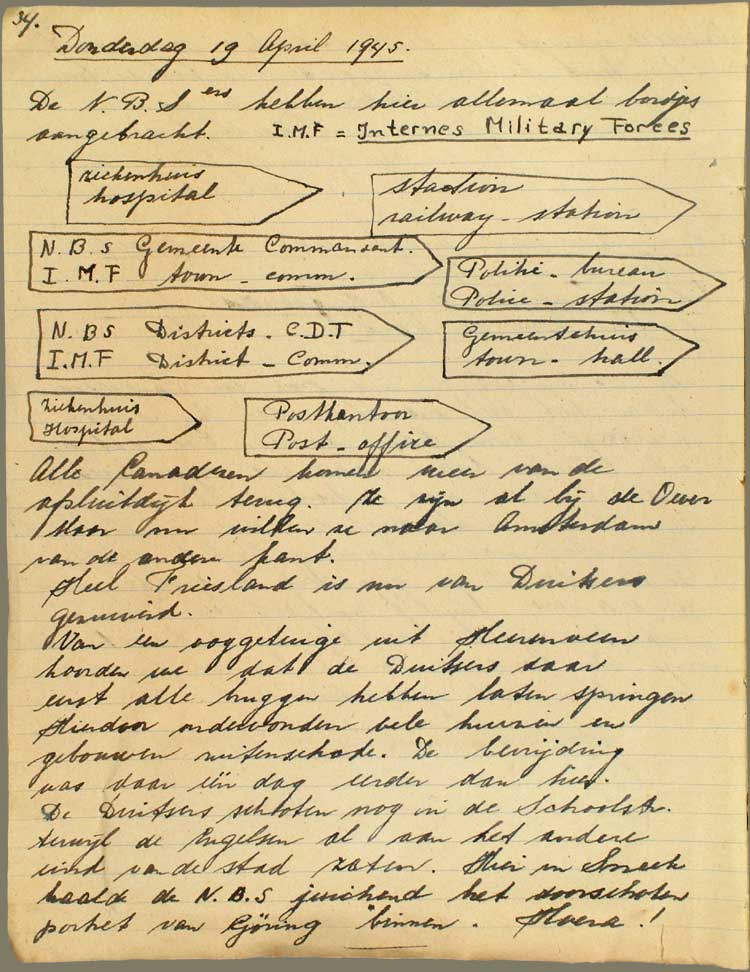 34.
Donderdag 19 April 1945.
De N.B.S ers hebben hier allemaal bordjes
aangebracht. I.M.F = Internes Military Forces
ziekenhuis
hospital
staetion
railway - station
N.B.S Gemeente Commandant.
I.M.F town - comm.
Politie - bureau
Police - station
N.B.S Districts - C.D.T
I.M.F District - Comm.
Gemeentehuis
town - hall.
Ziekenhuis
Hospital
Postkantoor
Post - office
Alle Canadezen komen weer van de
afsluitdijk terug. Ze zijn al bij de Oever
Maar nu willen ze naar Amsterdam
van de andere kant.
Heel Friesland is nu van Duitsers
gezuiverd.
Van een ooggetuige uit Heerenveen
hoorden we dat de Duitsers daar
eerst alle bruggen hebben laten springen
Hierdoor ondervonden vele huizen en
gebouwen ruitenschade. De bevrijding
was daar één dag eerder dan hier.
De Duitsers schoten nog in de Schoolstr.
terwijl de Engelsen al aan het andere
eind van de stad zaten. Hier in Sneek
haalde de N.B.S juichend het doorschoten
portret van Göring binnen. Hoera!